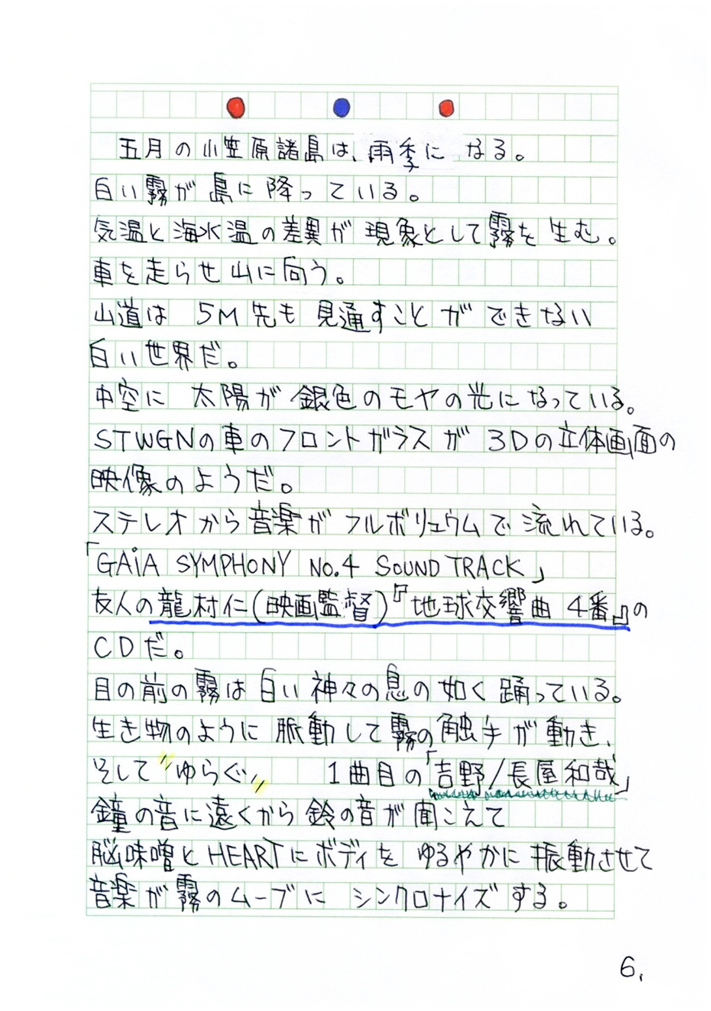 五月の小笠原諸島は、雨季になる。
白い霧が島に降っている。
気温と海水温の差異が現象として霧を生む。
車を走らせ山に向う。
山道は 5M先も見通すことができない
白い世界だ。
中空に 太陽が銀色のモヤの光になっている。
STWGNの車のフロントガラスが 3Dの立体画面の
映像のようだ。
ステレオから音楽がフルボリュウムで流れている。
「GAiA SYMPHONY No.4 SOUND TRACK」
友人の龍村仁(映画監督)『地球交響曲 4番』の
CDだ。
目の前の霧は白い神々の息の如く踊っている。
生き物のように脈動して霧の触手が動き、
そして〝ゆらぐ〟 1曲目の「吉野/長屋和哉」
鐘の音に遠くから鈴の音が聞こえて
脳味噌とHEARTにボディをゆるやかに振動させて
音楽が霧のムーブに シンクロナイズする。
6.